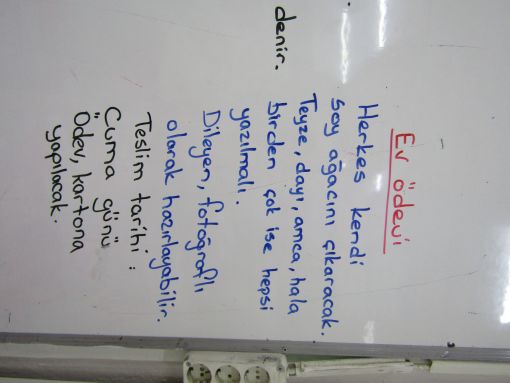 denir.
Ev ödevi
Herkes kendi
soy ağacını çıkaracak.
Teyze, dayı, amca, hala
birden çok ise hepsi
yazılmalı.
Dileyen, fotoğraflı
olarak hazırlayabilir.
Teslim tarihi :
Cuma günü
Ödev, kartona
yapılacak.